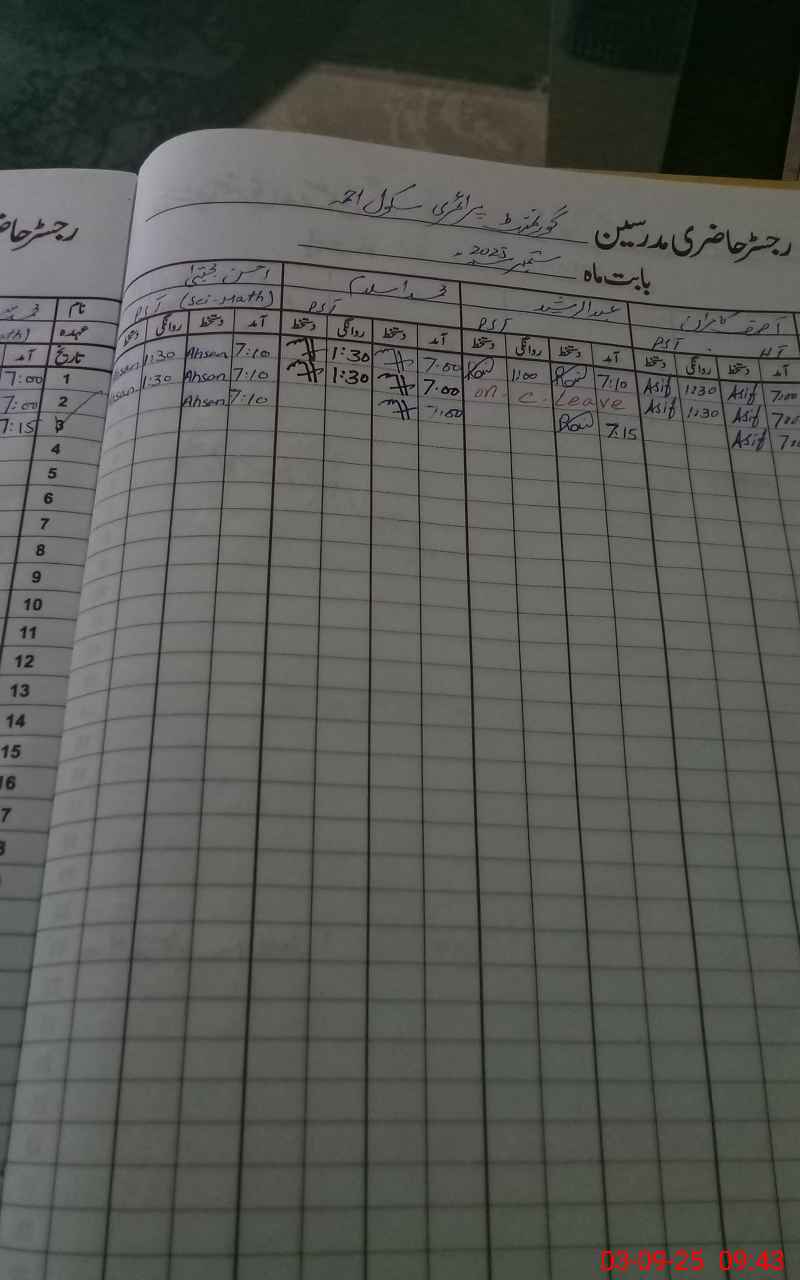 رجسٹر حاضری مدرسین گورنمنٹ پرائمری سکول
بابت ماہ ستمبر 2025
آصف کامران عبدالرشید محمد اسلم احسن مجتبیٰ
PST PST PST (Sci-Math)
آمد دستخط روانگی دستخط آمد دستخط روانگی دستخط آمد دستخط روانگی دستخط آمد دستخط روانگی دستخط
7:00 Asif 1:30 Asif 7:10 1:00 7:00 1:30 7:10 Ahsan 1:30 Ahsan
Asif 1:30 Asif on C. Leave 7:00 1:30 7:10 Ahsan 1:30
Asif 7:15 7:00 7:10 Ahsan
رجسٹر
نام
عہدہ
تاریخ آمد
1 7:00
2 7:00
3 7:15
4
5
6
7
8
9
10
11
12
13
14
15
16
7
03-09-25 09:43